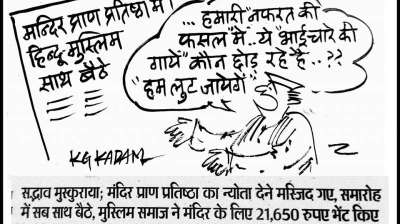 मन्दिर प्राण प्रतिष्ठा में
हिन्दू-मुस्लिम
साथ बैठे
...हमारी "नफरत की
फसल" में.. ये "भाईचारे की
गायें" कौन छोड़ रहे है..??
"हम लुट जायेगें"
KG KADAM
सद्भाव मुस्कुराया; मंदिर प्राण प्रतिष्ठा का न्योता देने मस्जिद गए, समारोह
में सब साथ बैठे, मुस्लिम समाज ने मंदिर के लिए 21,650 रुपए भेंट किए